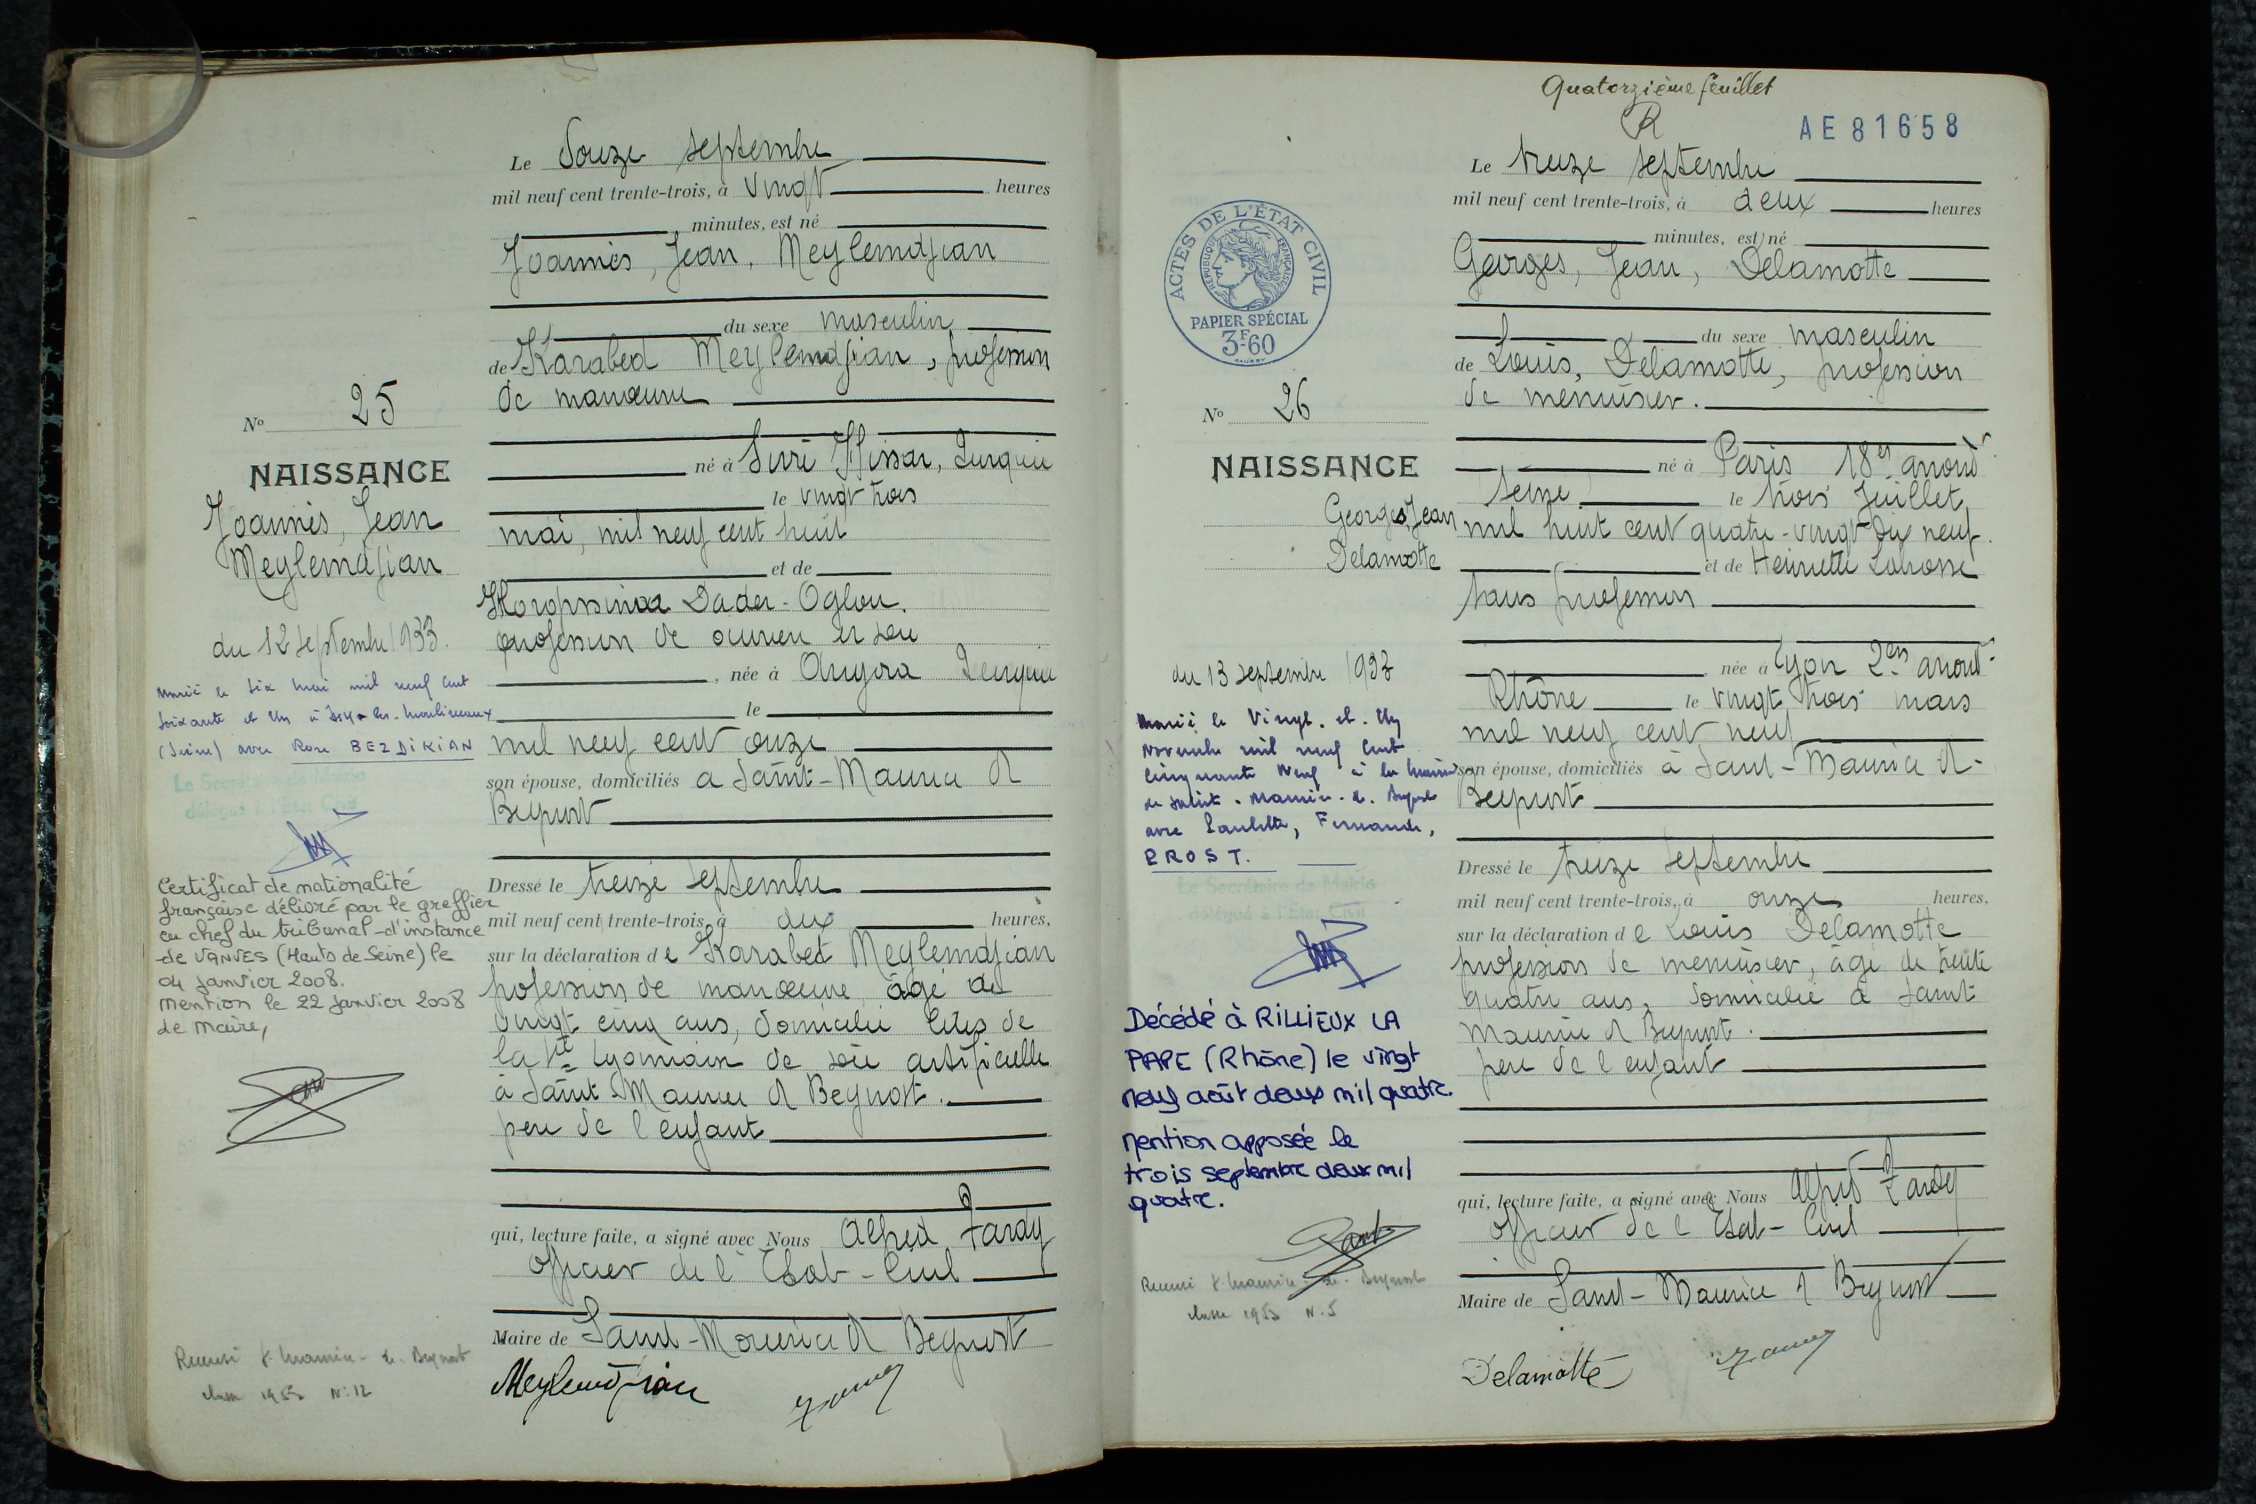 Le douze septembre
mil neuf cent trente-trois, à vingt heures
minutes, est né
Joannès, Jean, Meylemdjian
du sexe masculin
de Karabed Meylemdjian, profession
de manœuvre
né à Sivri Hissar, Turquie
le vingt trois
mai, mil neuf cent huit
et de
Dader-Oglou,
profession de ouvrière en soie
, née à Angora Turquie
le
mil neuf cent onze
son épouse, domiciliés à Saint-Maurice d
Beynost
Dressé le treize septembre
mil neuf cent trente-trois, à dix heures,
sur la déclaration de Karabed Meylemdjian
profession de manœuvre âgé de
vingt cinq ans, domicilié cités de
la Sté Lyonnaise de soie artificielle
à Saint Maurice d Beynost.
père de l'enfant
qui, lecture faite, a signé avec Nous Alfred Tardy
officier de l'Etat-Civil
Maire de Saint-Maurice d Beynost
Meylemdjian
No 25
NAISSANCE
Joannès, Jean
Meylemdjian
du 12 septembre 1933.
Marié le six mai mil neuf cent
soixante et un à Issy-les-Moulineaux
(Seine) avec Rose BEZDIKIAN
Le Secrétaire de Mairie
délégué à l'Etat Civil
Certificat de nationalité
française délivré par le greffier
en chef du tribunal d'instance
de VANVES (Hauts de Seine) le
04 janvier 2008.
Mention le 22 janvier 2008
de Maire,
Recensé St Maurice-de-Beynost
classe 1953 N°12
Quatorzième feuillet
AE 81658
Le treize septembre
mil neuf cent trente-trois, à deux heures
minutes, est né
Georges, Jean, Delamotte
du sexe masculin
de Louis, Delamotte, profession
de menuisier.
né à Paris 18e arrondt
Seine le trois Juillet
mil huit cent quatre-vingt-dix neuf.
et de Henriette
sans profession
née à Lyon 2em arrondt
Rhône le vingt trois mars
mil neuf cent neuf
son épouse, domiciliés à Saint-Maurice d
Beynost
Dressé le treize septembre
mil neuf cent trente-trois, à onze heures,
sur la déclaration de Louis Delamotte
profession de menuisier, âgé de trente
quatre ans, domicilié à Saint
Maurice d Beynost.
père de l'enfant
qui, lecture faite, a signé avec Nous Alfred Tardy
officier de l'Etat-Civil
Maire de Saint-Maurice d Beynost
Delamotte
ACTES DE L'ÉTAT CIVIL
RÉPUBLIQUE FRANÇAISE
PAPIER SPÉCIAL
3F60
No 26
NAISSANCE
Georges, Jean
Delamotte
du 13 septembre 1933
Marié le Vingt-et-Un
novembre mil neuf cent
cinquante neuf à la Mairie
de Saint-Maurice-de-Beynost
avec Paulette, Fernande,
PROST.
Le Secrétaire de Mairie
délégué à l'Etat Civil
Décédé à RILLIEUX LA
PAPE (Rhône) le vingt
neuf août deux mil quatre.
Mention apposée le
trois septembre deux mil
quatre.
Recensé St Maurice-de-Beynost
classe 1953 N°5